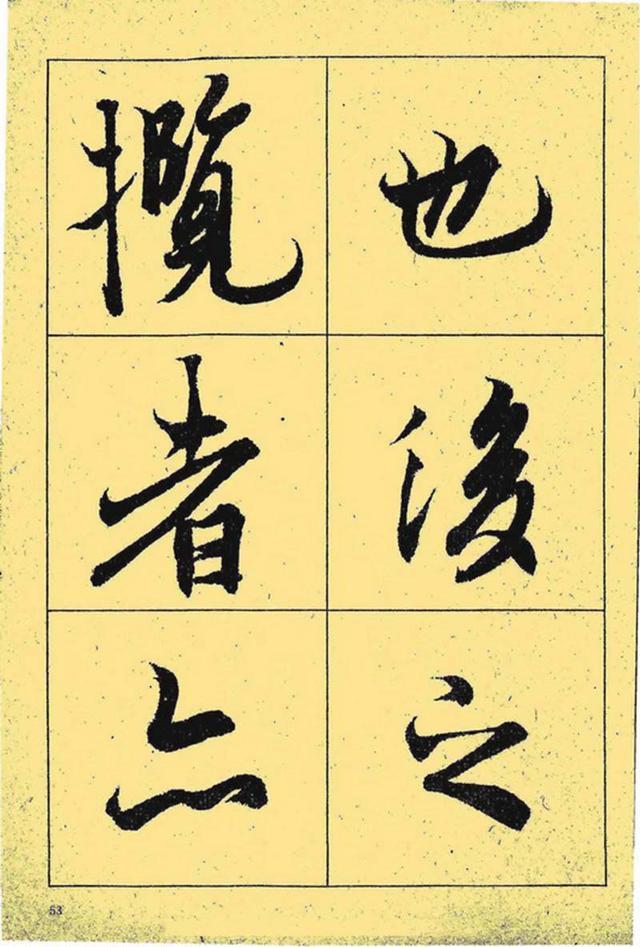 也後之
攬者亦
53